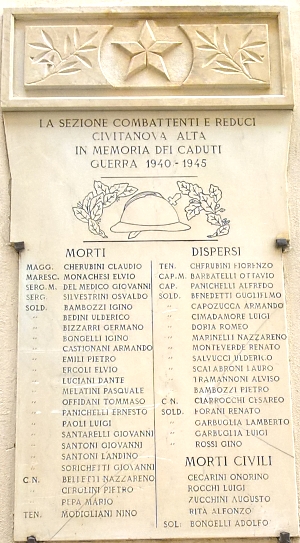 LA SEZIONE COMBATTENTI E REDUCI
CIVITANOVA ALTA
IN MEMORIA DEI CADUTI
GUERRA 1940-1945
MORTI
MAGG. CHERUBINI CLAUDIO
MARESC. MONACHESI ELVIO
SERG.M. DEL MEDICO GIOVANNI
SERG. SILVESTRINI OSVALDO
SOLD. BAMBOZZI IGINO
" BEDINI ULDERICO
" BIZZARRI GERMANO
" BONGELLI IGINO
" CASTIGNANI ARMANDO
" EMILI PIETRO
" ERCOLI ELVIO
" LUCIANI DANTE
" MELATINI PASQUALE
" OFFIDANI TOMMASO
" PANICHELLI ERNESTO
" PAOLI LUIGI
" SANTARELLI GIOVANNI
" SANTONI GIOVANNI
" SANTONI LANDINO
" SORICHETTI GIOVANNI
C.N. BELLETTI NAZZARENO
" CEROLINI PIETRO
" PEPA MARIO
TEN. MODIGLIANI NINO
DISPERSI
TEN. CHERUBINI FIORENZO
CAP.M. BARBATELLI OTTAVIO
CAP. PANICHELLI ALFREDO
SOLD. BENEDETTI GUGLIELMO
" CAPOZUCCA ARMANDO
" CIMADAMORE LUIGI
" DORIA ROMEO
" MARINELLI NAZZARENO
" MONTEVERDE RENATO
" SALVUCCI ULDERICO
" SCALABRONI LAURO
" TRAMANNONI ALVISO
" BAMBOZZI PIETRO
C.N. CIARROCCHI CESAREO
SOLD. FORANI RENATO
" GARBUGLIA LAMBERTO
" GARBUGLIA LUIGI
" ROSSI GINO
MORTI CIVILI
CECARINI ONORINO
ROCCHI LUIGI
ZUCCHINI AUGUSTO
RITA ALFONZO
SOL: BONGELLI ADOLFO